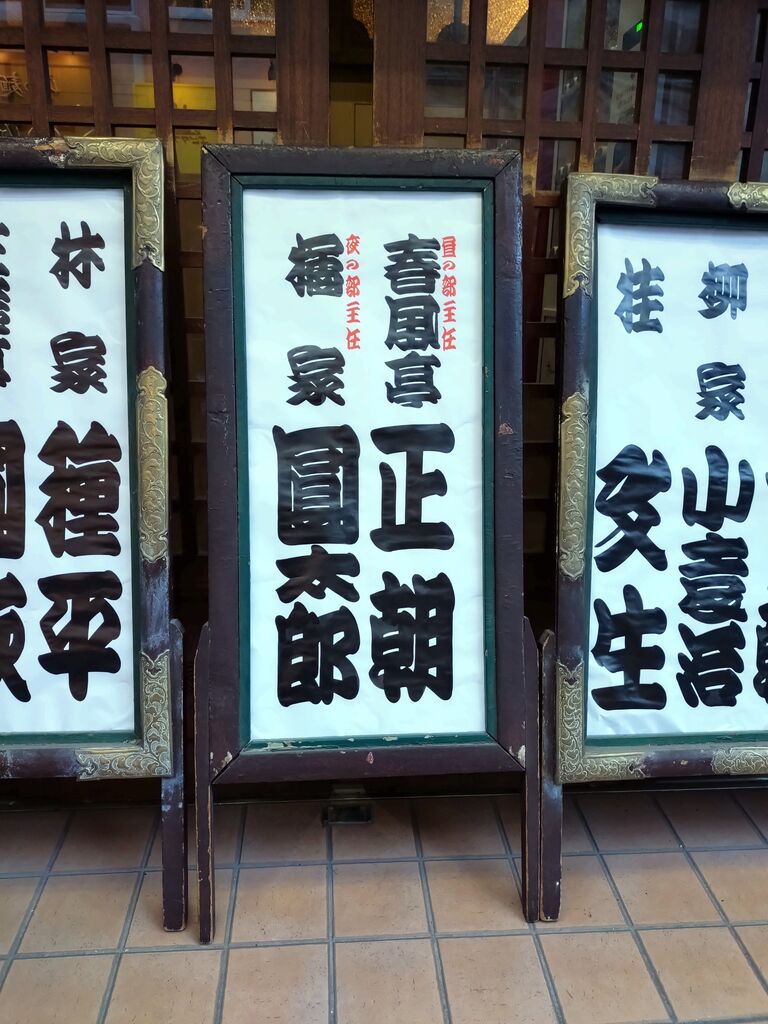 柳家小袁治
桂文生
昼の部主任
春風亭正朝
夜の部主任
橘家圓太郎
林家種平